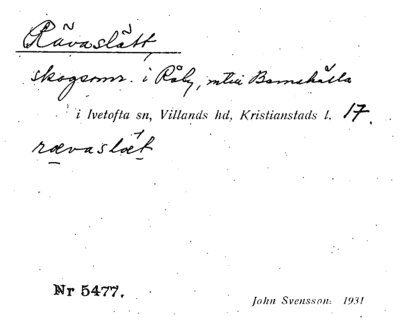 Rävaslätt,
skogsomr. i Råby, intill
i Ivetofta sn, Villands hd, Kristianstads l. 17.
rævaslæt
Nr 5477.
John Svensson. 1931